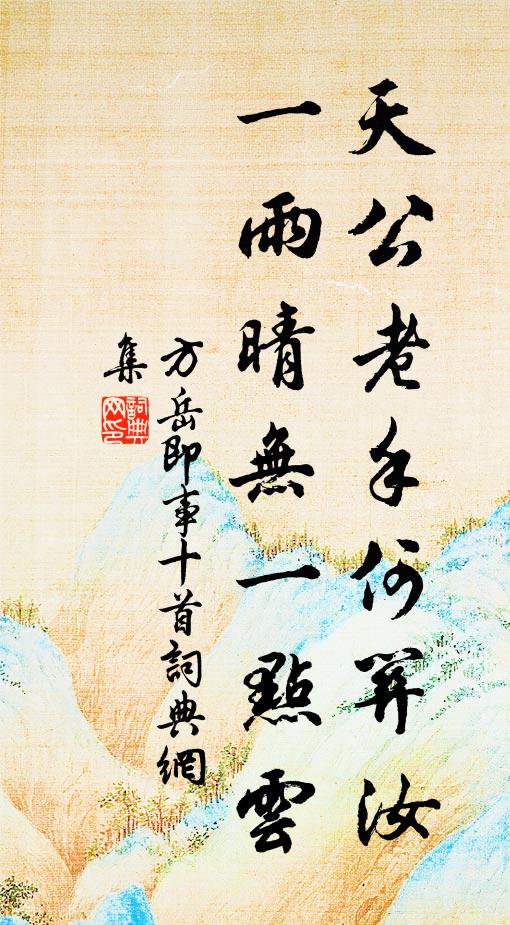 天公老手何關汝
一雨晴無一點雲
方岳即事十首詞典網
集
詞典网印